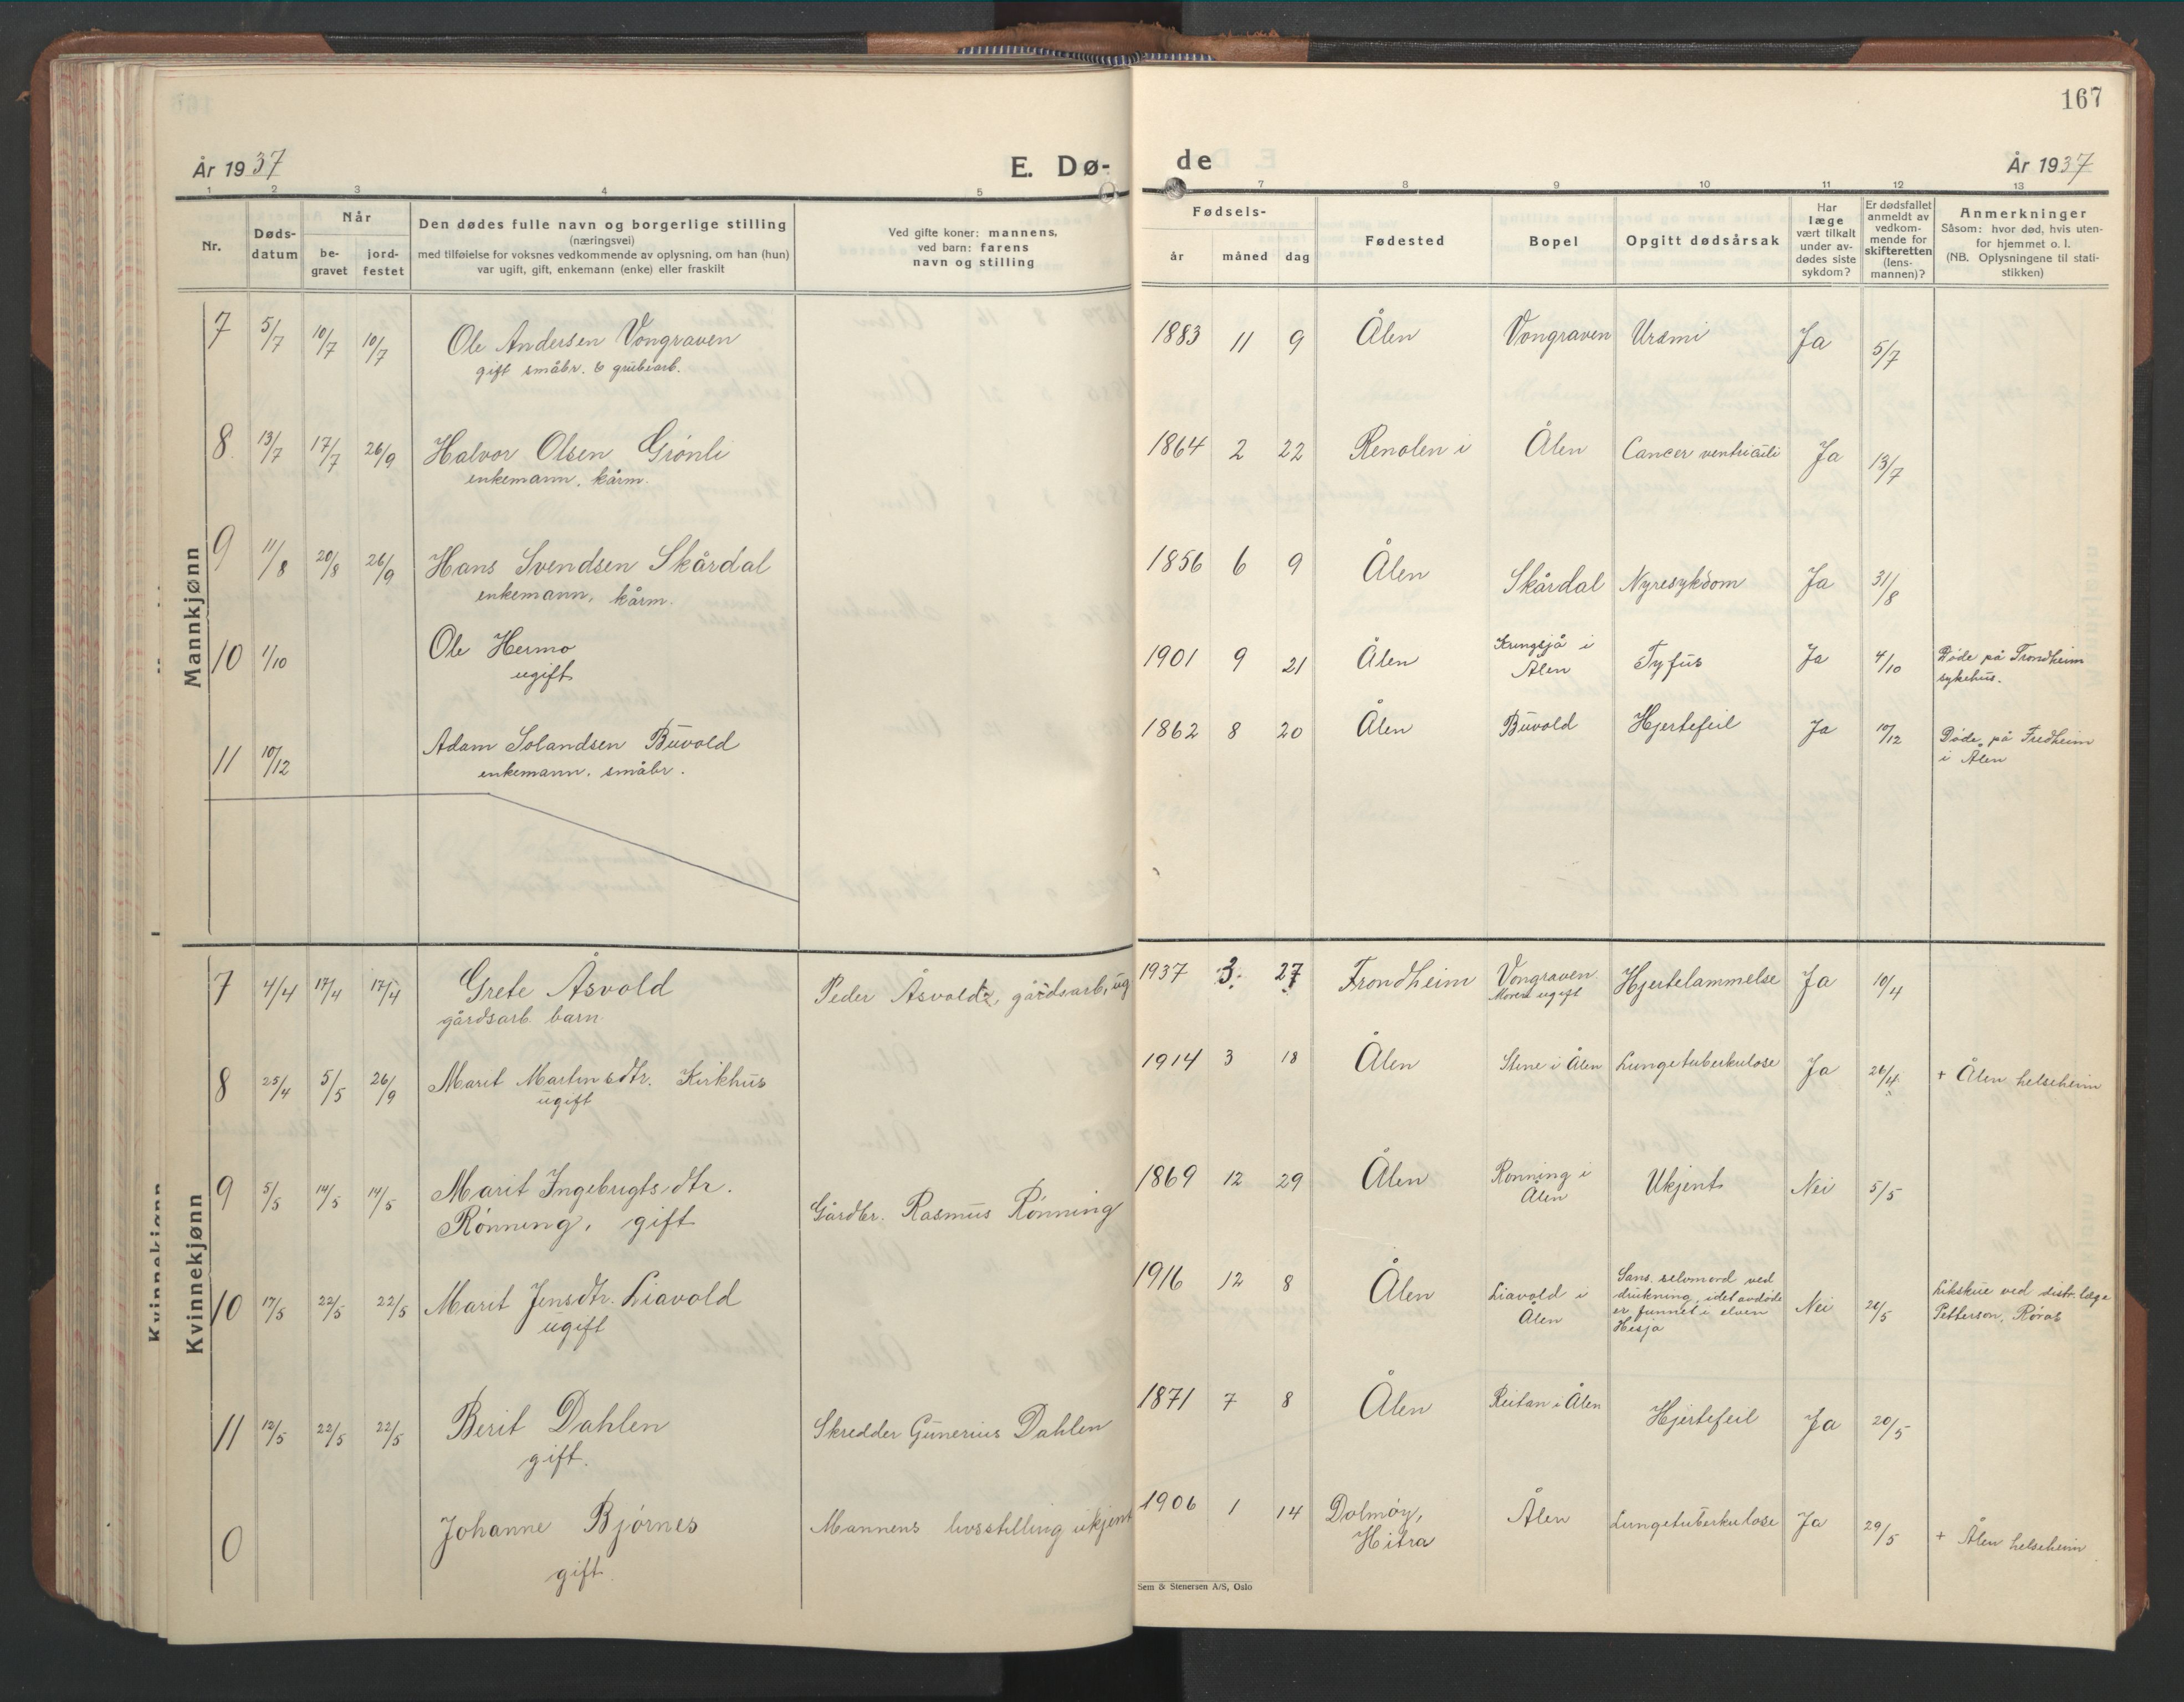 167
År 1937 E. Dø- de År 1937
1 2 3 4 5 7 8 9 10 11 12 13
Nr. | Dødsdatum | Når begravet | jordfestet | Den dødes fulle navn og borgerlige stilling (næringsvei) med tilføielse for voksnes vedkommende av oplysning, om han (hun) var ugift, gift, enkemann (enke) eller fraskilt | Ved gifte koner: mannens, ved barn: farens navn og stilling | Fødsels- år | måned | dag | Fødested | Bopel | Opgitt dødsårsak | Har læge vært tilkalt under avdødes siste sykdom? | Er dødsfallet anmeldt av vedkommende for skifteretten (lensmannen)? | Anmerkninger Såsom: hvor død, hvis utenfor hjemmet o. l. (NB. Oplysningene til statistikken)
Mannkjønn
7 5/7 10/7 10/7 Ole Andersen Vongraven 1883 11 9 Ålen Vongraven Uræmi Ja 5/7
gift småbr. & grubearb.
8 13/7 17/7 26/9 Halvor Olsen Grönli 1864 2 22 Renolen i Ålen Cancer ventriculi Ja 13/7
enkemann, kårm.
9 11/8 20/8 26/9 Hans Svendsen Skårdal 1856 6 9 Ålen Skårdal Nyresykdom Ja 31/8
enkemann, kårm.
10 1/10 Ole Hermo 1901 9 21 Ålen Kringsjå i Tyfus Ja 4/10 Døde på Trondheim
ugift Ålen sykehus.
11 10/12 Adam Solandsen Buvold 1862 8 20 Ålen Buvold Hjertefeil Ja 10/12 Døde på Fredheim
enkemann, småbr. i Ålen
Kvinnekjønn
Kvinnekjønn
7 4/4 17/4 17/4 Grete Åsvold Peder Åsvold, gårdsarb, ug 1937 3. 27 Trondheim Vongraven Hjertelammelse Ja 10/4
gårdsarb. barn. Moren ugift
8 25/4 5/5 26/9 Marit Martinsdtr. Kirkhus 1914 3 18 Ålen Stene i Ålen Lungetuberkulose Ja 26/4 + Ålen helseheim
ugift
9 5/5 14/5 14/5 Marit Ingebrigtsdtr. 1869 12 29 Ålen Rönning i Ukjent Nei 5/5
Rönning, gift Gårdbr. Rasmus Rönning Ålen
10 17/5 22/5 22/5 Marit Jensdtr. Liavold 1916 12 8 Ålen Liavold i Sans. selvmord ved Nei 20/5 Likskue ved distr. læge
ugift Ålen drukning, idet avdøde Petterson, Røros
er funnet i elven
Hesja
11 12/5 22/5 22/5 Berit Dahlen Skredder Gunerius Dahlen 1871 7 8 Ålen Reitan i Ålen Hjertefeil Ja 20/5
gift.
0 Johanne Bjørnes Mannens livsstilling ukjent 1906 1 14 Dolmöy, Ålen Lungetuberkulose Ja 29/5 + Ålen helseheim
gift. Hitra
Sem & Stenersen A/S, Oslo